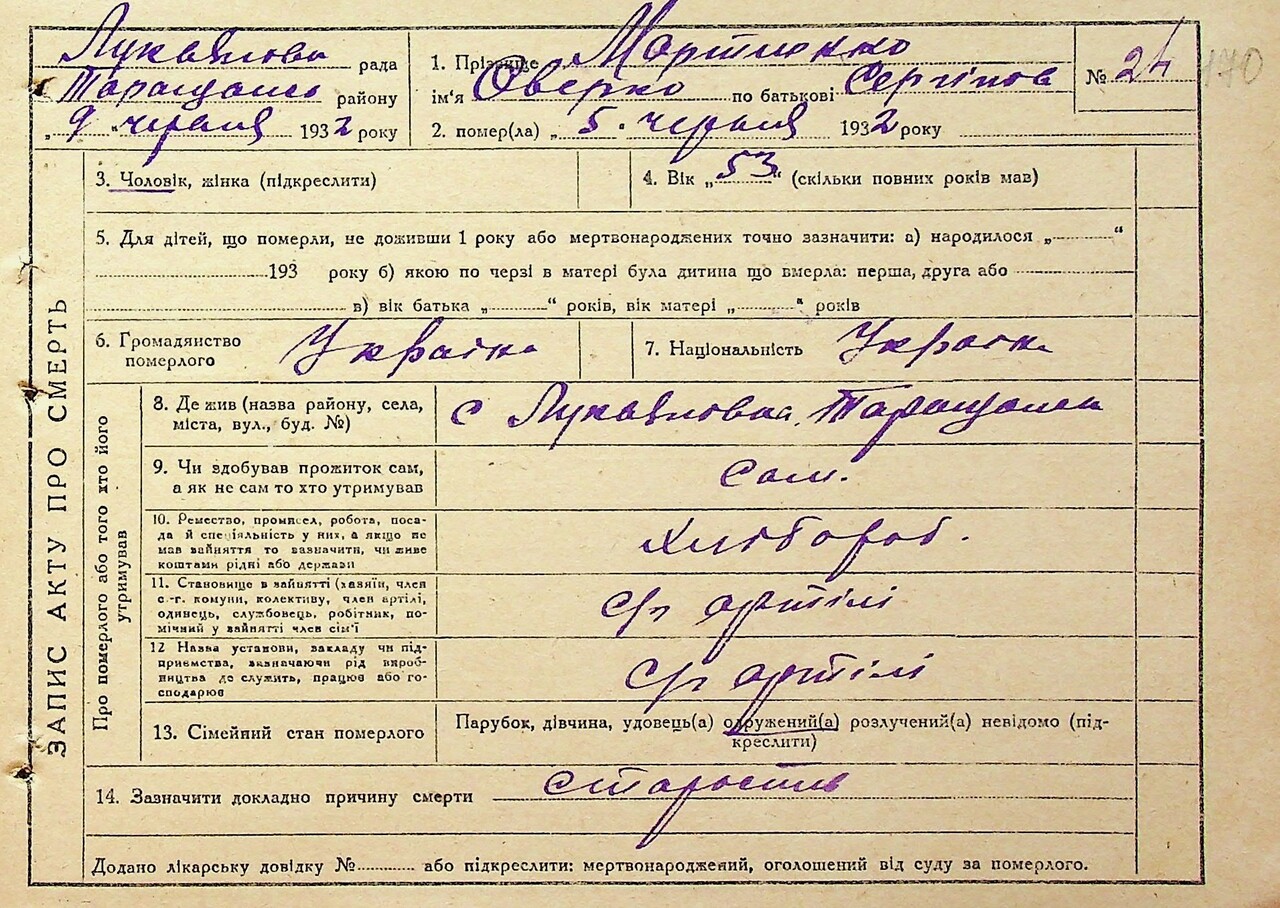 Лукаянова рада
Таращансь району
„ 9 “ червня 1932 року
1. Прізвище Мартиенко
ім'я Оверко по батькові Сергійов
№ 24 170
2. помер(ла) „ 5. червня 1932 року
ЗАПИС АКТУ ПРО СМЕРТЬ
3. Чоловік, жінка (підкреслити)
4. Вік „53“ (скільки повних років мав)
5. Для дітей, що померли, не доживши 1 року або мертвонароджених точно зазначити: а) народилося „ “
193 року б) якою по черзі в матері була дитина що вмерла: перша, друга або
в) вік батька „ “ років, вік матері „ “ років
6. Громадянство
померлого
Українa
7. Національність Українa
Про померлого або того хто його
утримував
8. Де жив (назва району, села,
міста, вул., буд. №)
с Таращансь
9. Чи здобував прожиток сам,
а як не сам то хто утримував
Сам.
10. Ремество, промисел, робота, поса-
да й спеціяльність у них, а якщо не
мав зайняття то зазначити, чи живе
коштами рідні або держави
Хлібороб.
11. Становище в зайнятті (хазяїн, член
с.-г. комуни, колективу, член артілі,
одинець, службовець, робітник, по-
мічний у зайнятті член сім'ї
с/г артілі
12 Назва установи, закладу чи під-
приємства, зазначаючи рід вироб-
ництва де служить, працює або го-
сподарює
с/г артілі
13. Сімейний стан померлого
Парубок, дівчина, удовець(а) одружений(а) розлучений(а) невідомо (під-
креслити)
14. Зазначити докладно причину смерти старость
Додано лікарську довідку № або підкреслити: мертвонароджений, оголошений від суду за померлого.